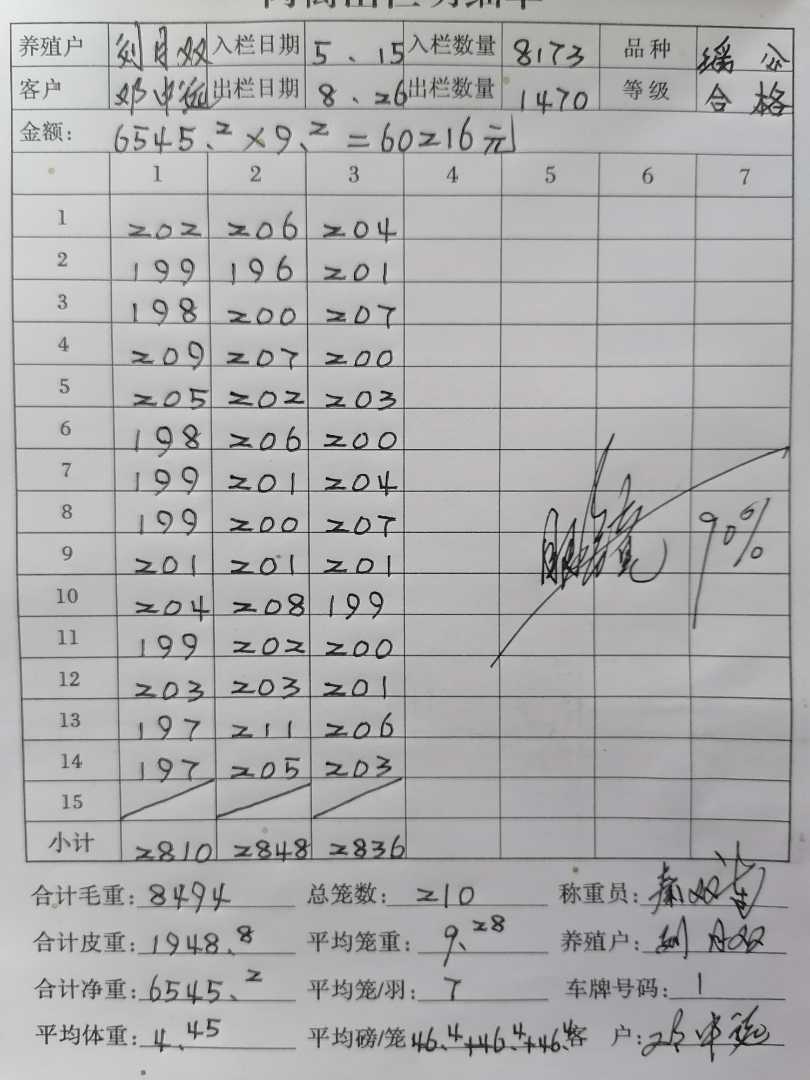 养殖户 刘月双 入栏日期 5.15 入栏数量 8173 品种
客户 邓中 出栏日期 8.26 出栏数量 1470 等级 合格
金额: 6545.2×9.2=60216元
1 2 3 4 5 6 7
1 202 206 204
2 199 196 201
3 198 200 207
4 209 207 200
5 205 202 203
6 198 206 200
7 199 201 204
8 199 200 207 90%
9 201 201 201
10 204 208 199
11 199 202 200
12 203 203 201
13 197 211 206
14 197 205 203
15
小计 2810 2848 2836
合计毛重: 8494 总笼数: 210 称重员: 秦双
合计皮重: 1948.8 平均笼重: 9.28 养殖户: 刘月双
合计净重: 6545.2 平均笼/羽: 7 车牌号码: 1
平均体重: 4.45 平均磅/笼 46.4+46.4+46.4 客户: 邓中